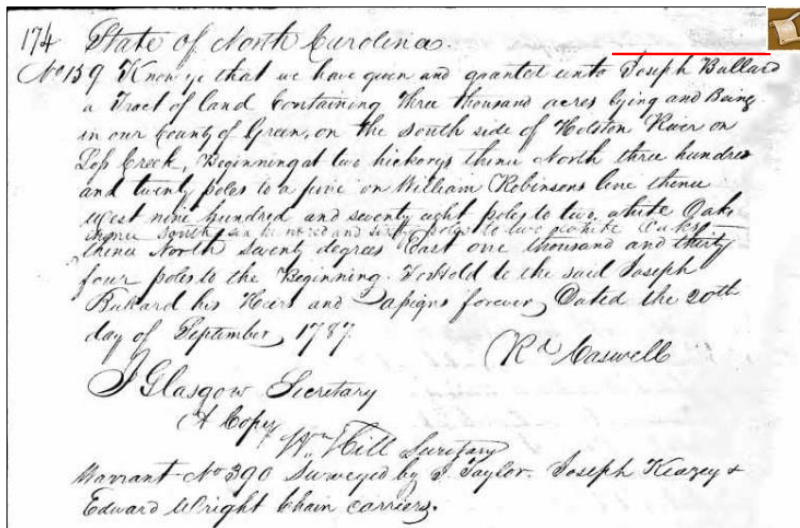 174 State of North Carolina.
No 159 Know ye that we have given and granted unto Joseph Bullard
a Tract of land Containing three thousand acres lying and Being
in our County of Green, on the south side of Holston River on
Creek, Beginning at two hickorys thence North three hundred
and twenty poles to a pine on William Robinsons line thence
West nine hundred and seventy eight poles to two white Oaks
thence south hundred and sixty poles to two white Oaks
thence North seventy degrees East one thousand and thirty
four poles to the Beginning. To hold to the said Joseph
Bullard his Heirs and Assigns forever, Dated the 20th
day of September, 1787.
Rd Caswell
J Glasgow Secretary
A Copy
Wm Hill Secretary
Warrant No 390 Surveyed by J. Taylor. Joseph Keazey +
Edward Wright Chain carriers.